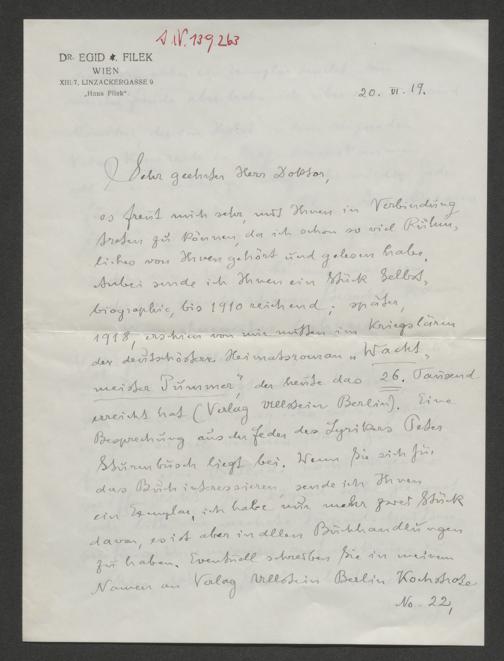 A.N. 139263
DR. EGID v. FILEK
WIEN
XIII/7, LINZACKERGASSE 9
„Haus Filek“.
20. VI. 19.
Sehr geehrter Herr Doktor,
es freut mich sehr, mit Ihnen in Verbindung
treten zu können, da ich schon so viel Rühm-
liches von Ihnen gehört und gelesen habe.
Anbei sende ich Ihnen ein Stück Selbst-
biographie, bis 1910 reichend; später,
1918, erschien von mir mitten im Kriegslärm
der deutschöster. Heimatsroman „Wacht-
meister Pummer“, der heute das 26. Tausend
erreicht hat (Verlag Ullstein Berlin). Eine
Besprechung aus der Feder des Lyrikers Peter
Sturmbusch liegt bei. Wenn Sie sich für
das Buch interessieren, sende ich Ihnen
ein Exemplar, ich habe nur mehr zwei Stück
davon, es ist aber in allen Buchhandlungen
zu haben. Eventuell schreiben Sie in meinem
Namen an Verlag Ullstein Berlin Kochstraße
No. 22,